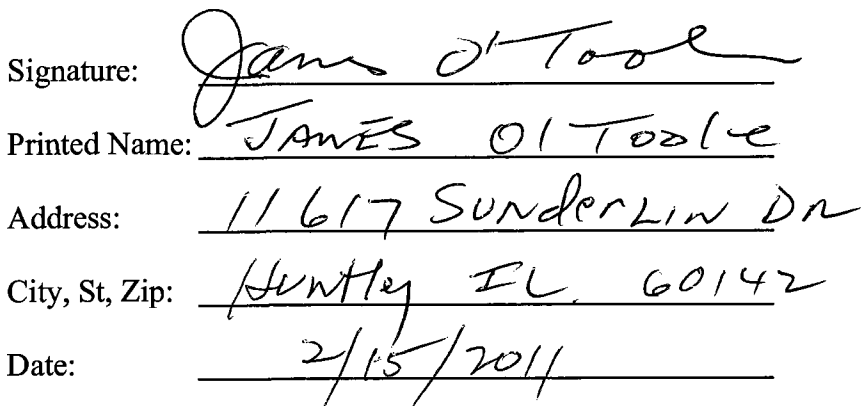 Signature: James O'Toole
Printed Name: JAMES O'Toole
Address: 11617 Sunderlin Dr
City, St, Zip: Huntley IL. 60142
Date: 2/15/2011